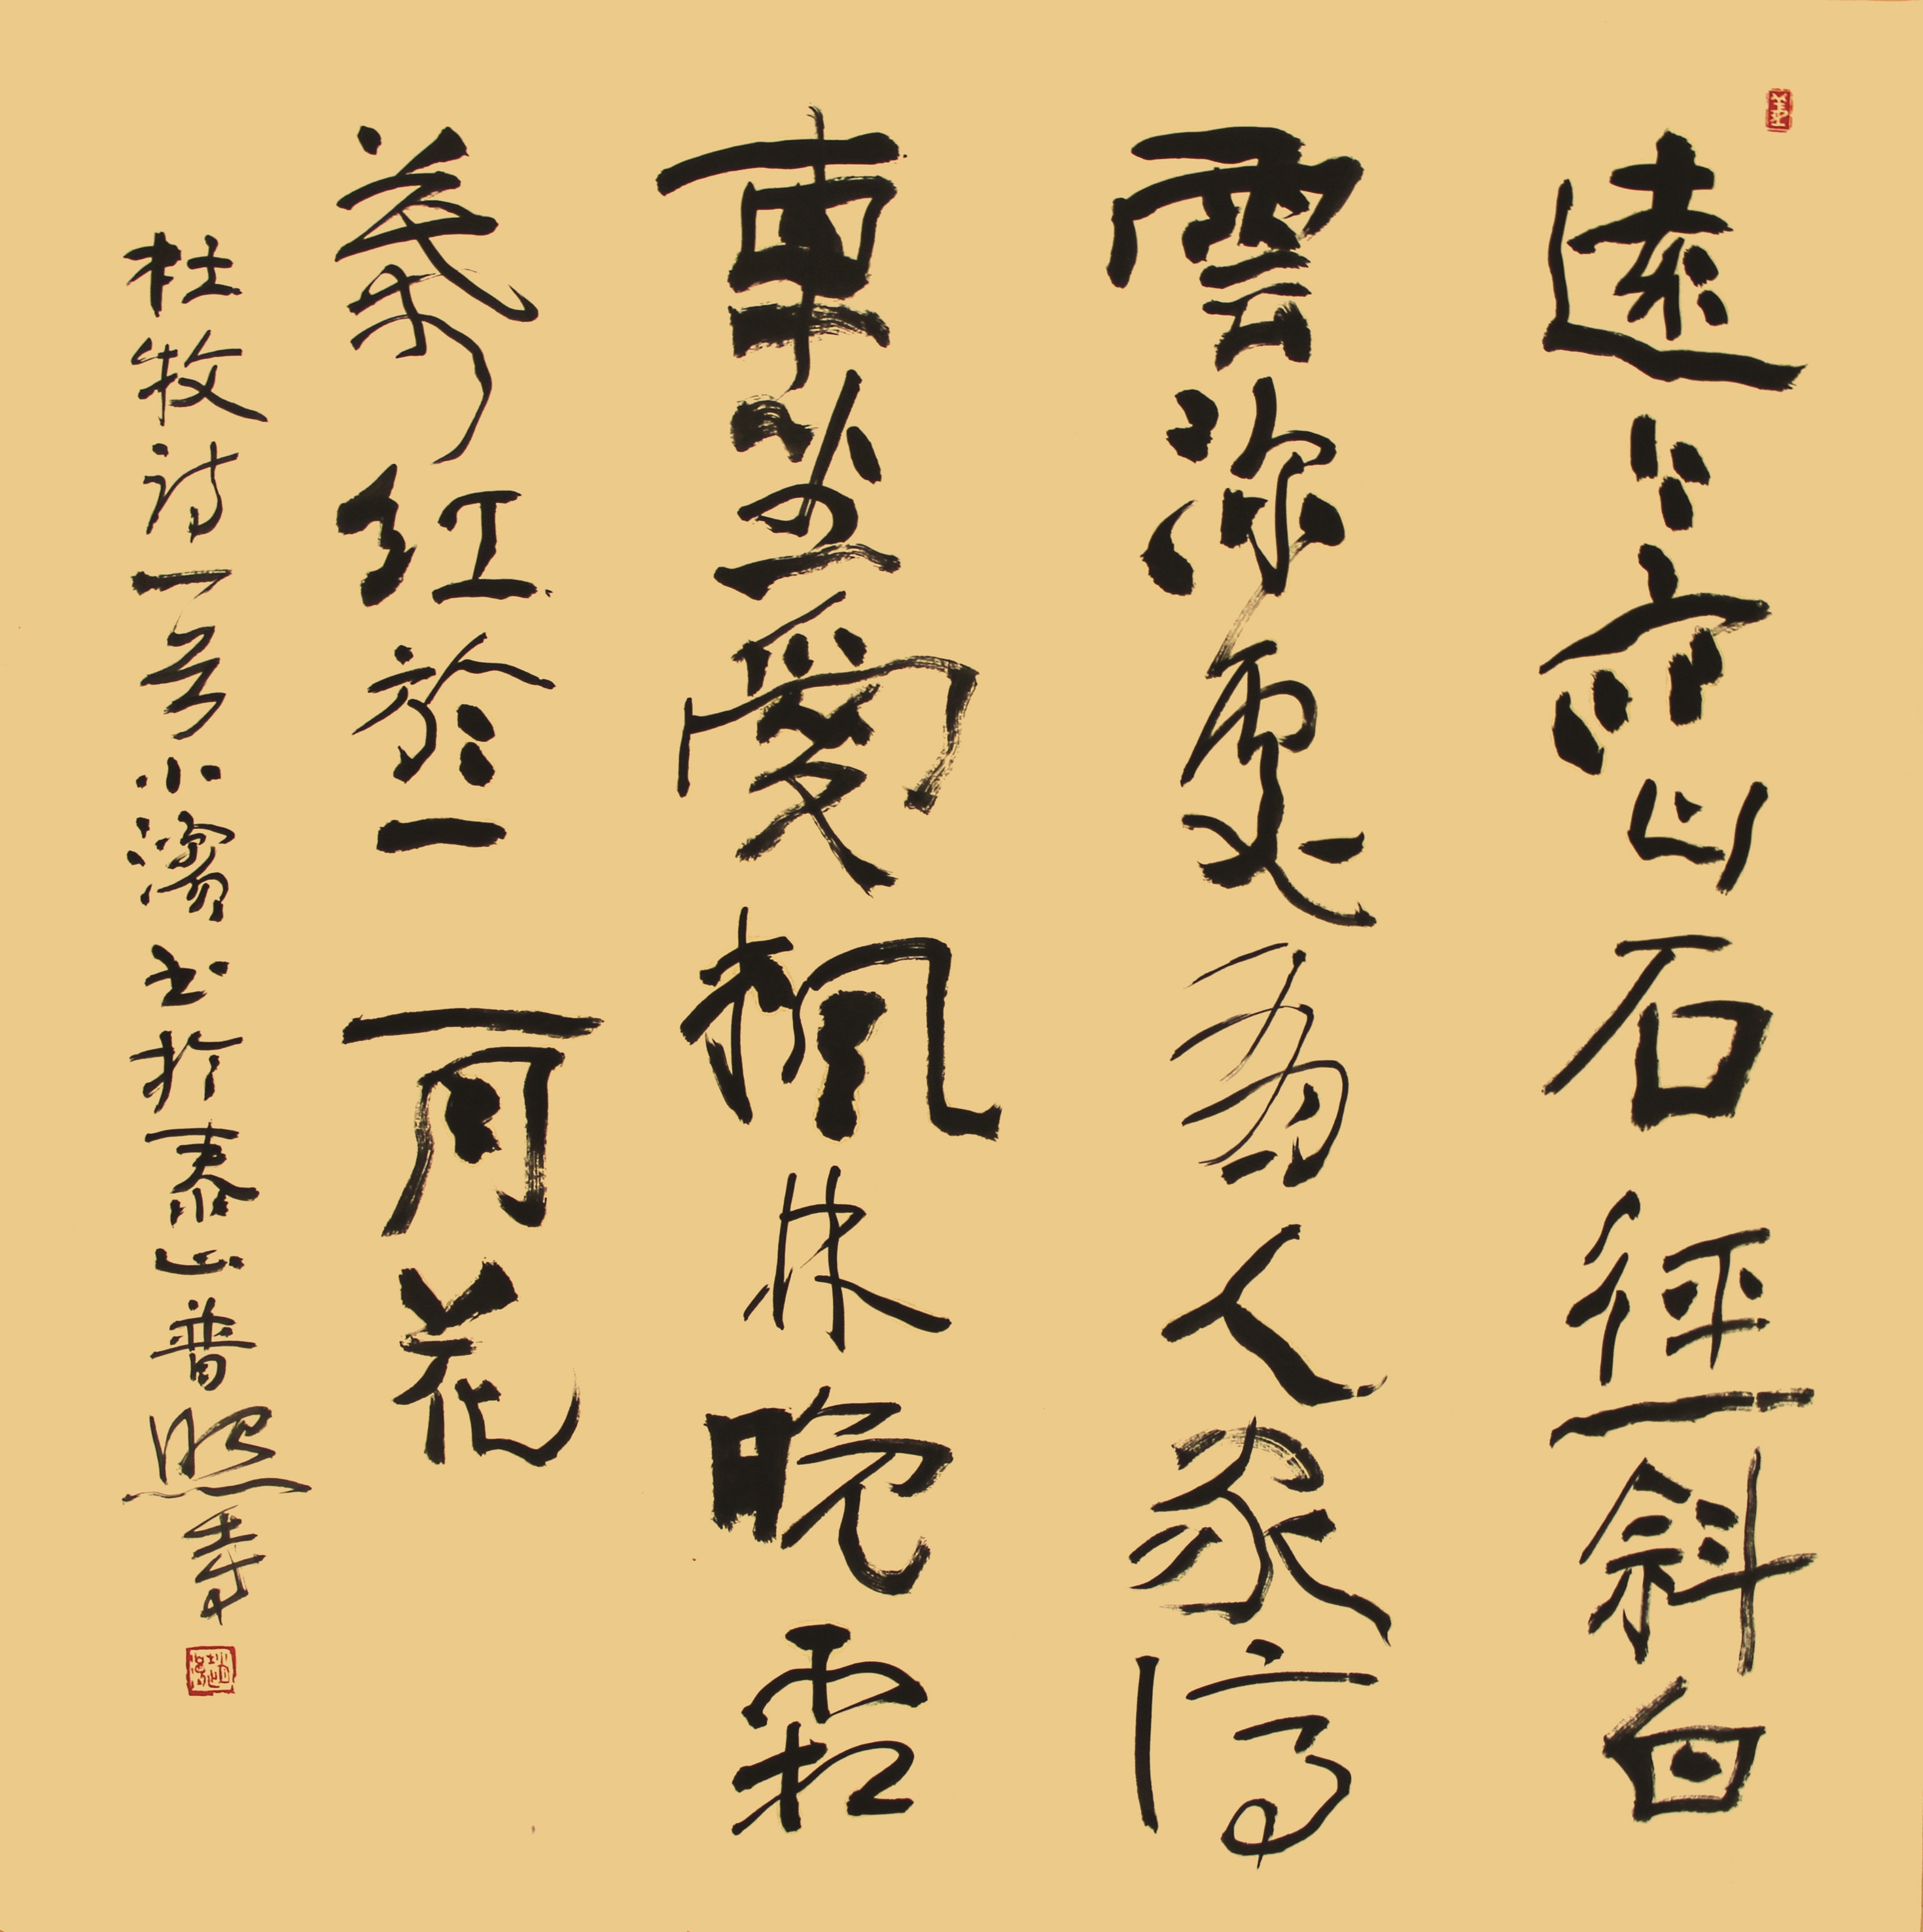 遠上寒山石徑斜白
雲深處有人家停
車坐愛楓林晚霜
葉紅於二月花
杜牧詩一首小书於泰山普照寺